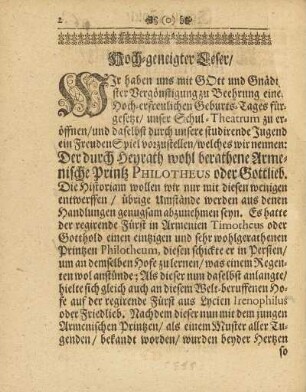 2 (o)
Hoch-geneigter Leser/
WIr haben uns mit GOtt und Gnädi-
gster Vergönstigung zu Beehrung eine
Hoch-erfreulichen Geburts-Tages für-
gesetzt/ unser Schul-Theatrum zu er-
öffnen/ und daselbst durch unsere studirende Jugend
ein Freuden Spiel vorzustellen/ welches wir nennen:
Der durch Heyrath wohl berathene Arme-
nische Printz PHILOTHEUS oder Gottlieb.
Die Historiam wollen wir nur mit diesen wenigen
entwerffen / übrige Umstände werden aus denen
Handlungen genugsam abzunehmen seyn. Es hatte
der regirende Fürst in Armenien Timotheus oder
Gotthold einen eintzigen und sehr wohlgerathenen
Printzen Philotheum, diesen schickte er in Persien/
um an demselben Hofe zu lernen/ was einem Regen-
ten wol anstünde; Als dieser nun daselbst anlangte/
hielte sich gleich auch an diesem Welt-beruffenen Ho-
fe auf der regirende Fürst aus Lycien Irenophilus
oder Friedlieb. Nachdem dieser nun mit dem jungen
Armenischen Printzen/ als einem Muster aller Tu-
genden/ bekandt worden/ wurden beyder Hertzen
so